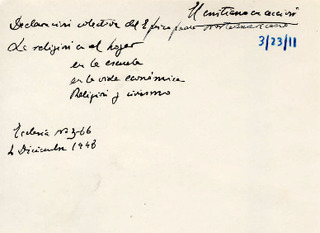 El cristiano en acción
Declaración colectiva del Episcopado norteamericano
3/23/11
La religión en el hogar
en la escuela
en la vida económica
Religión y civismo
Ecclesia nº 3-66
4 Diciembre 1948